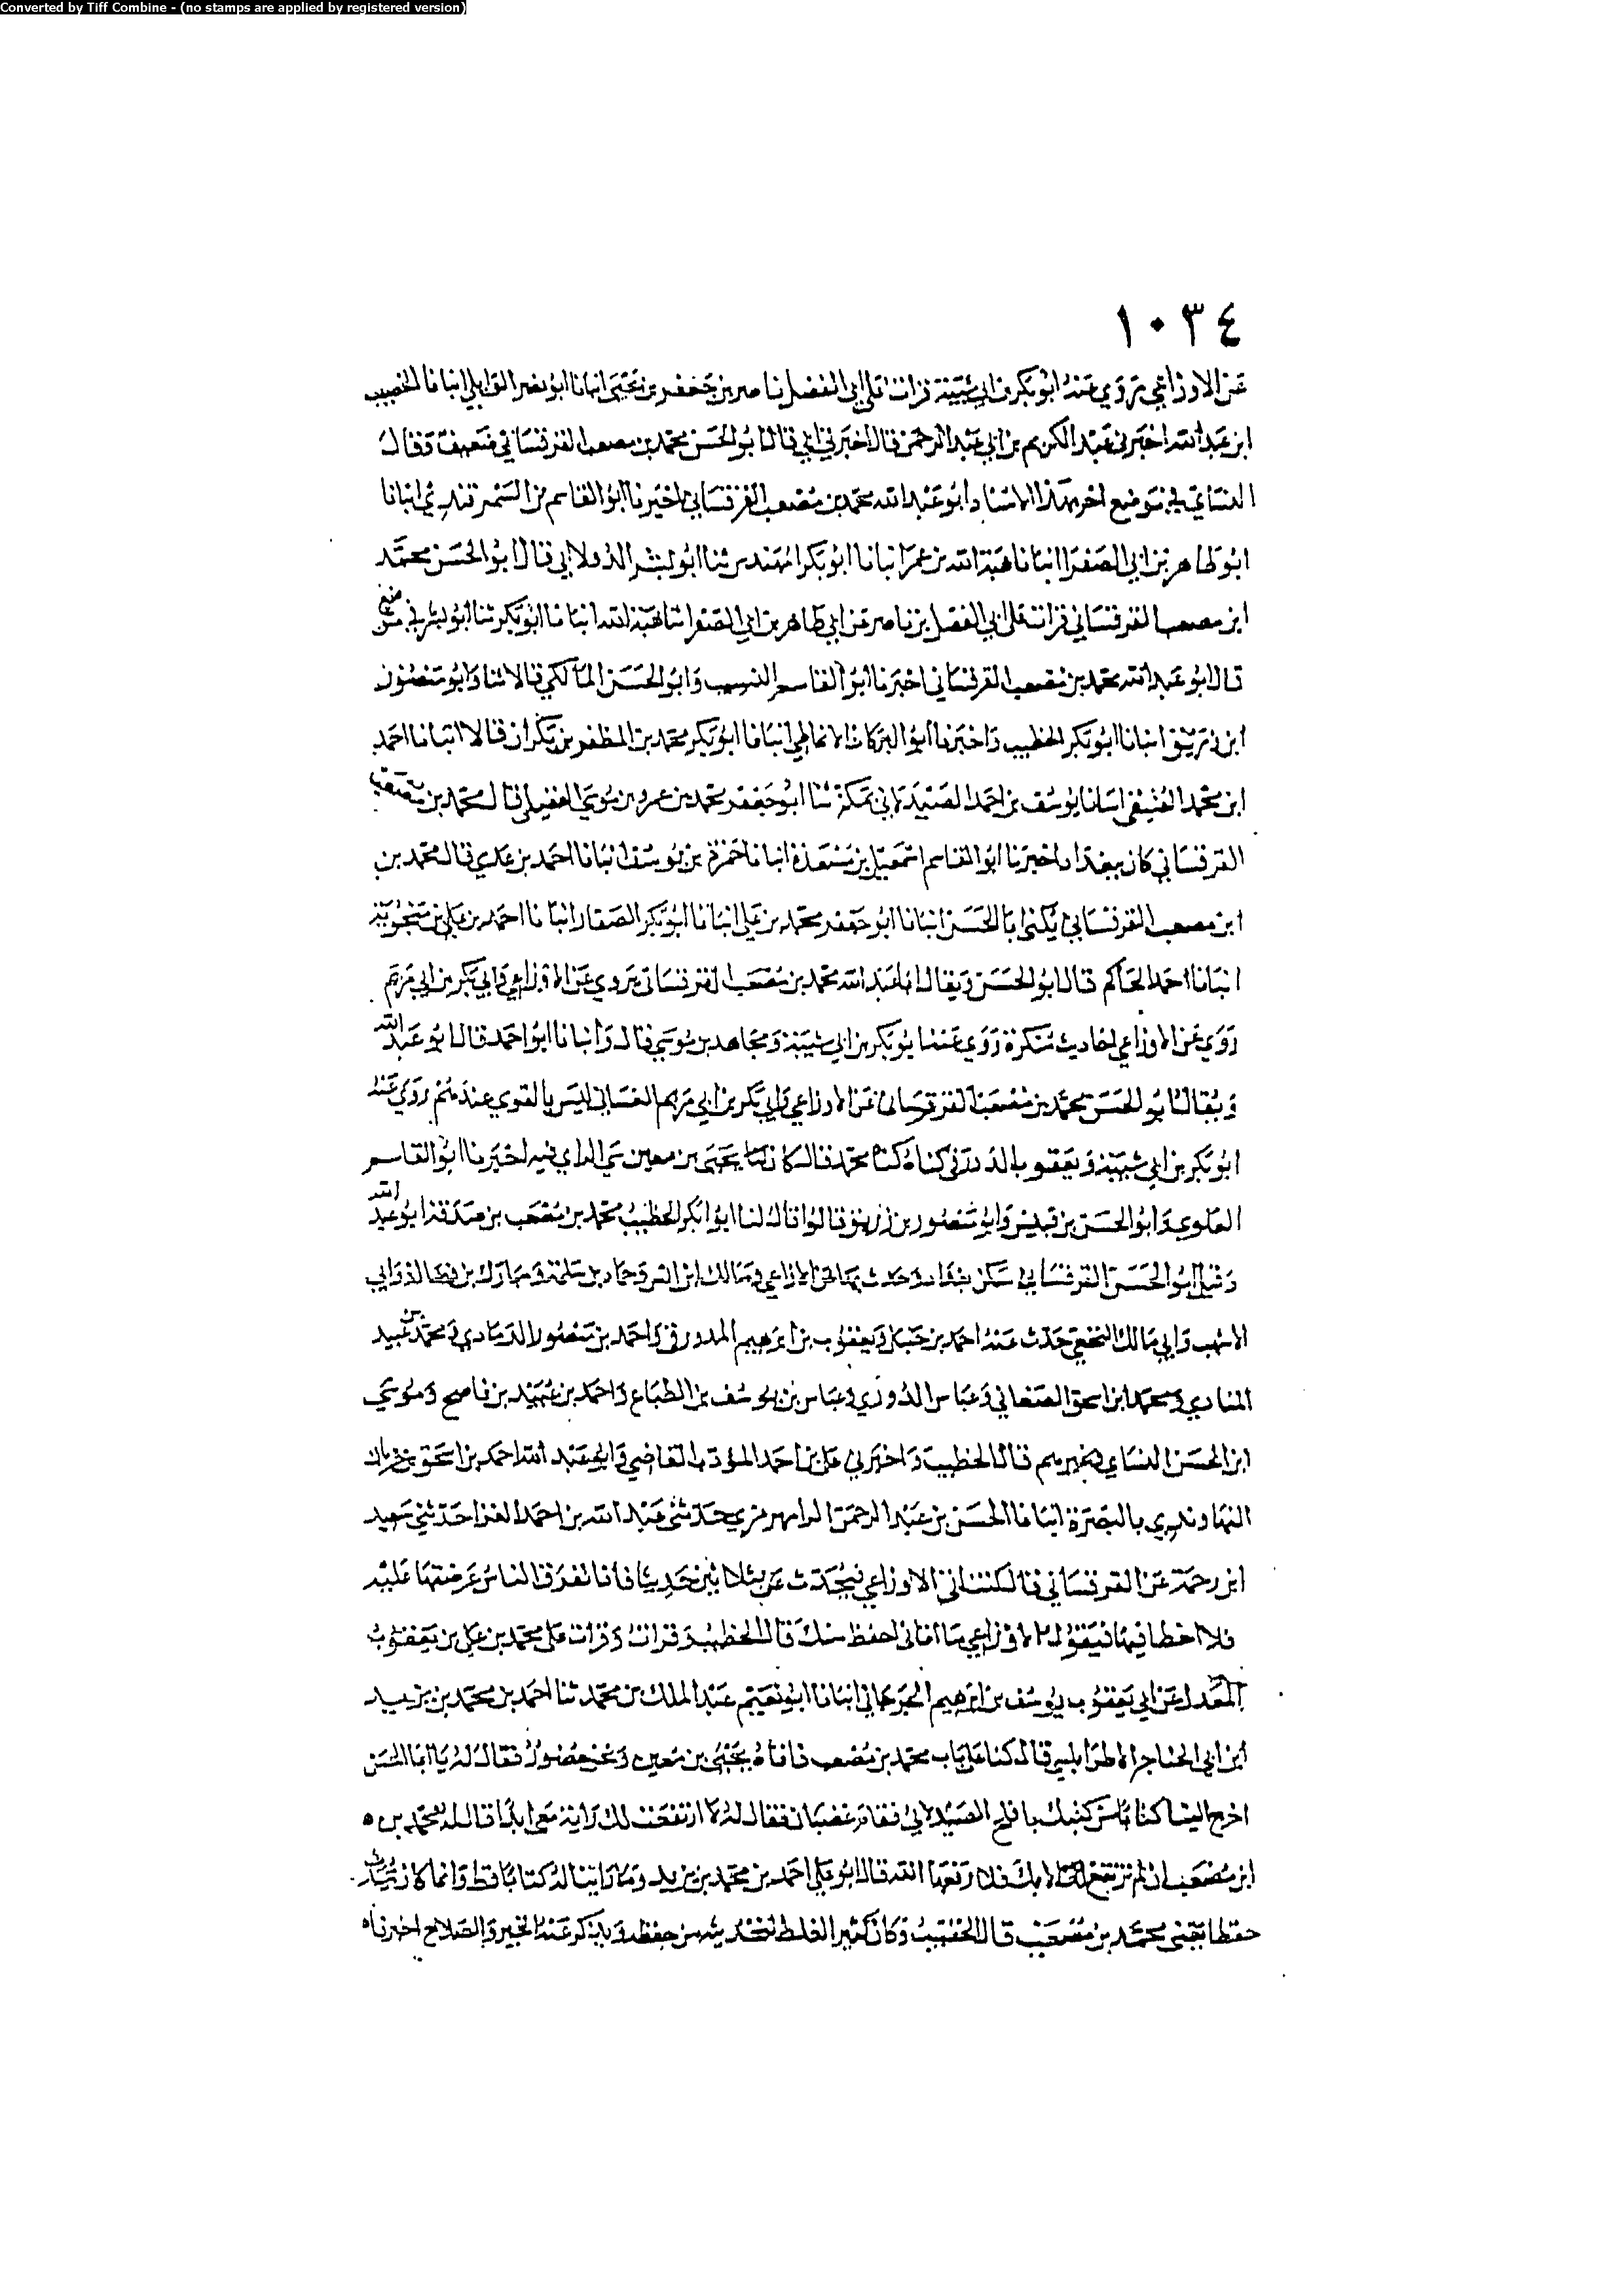 Converted by Tiff Combine - (no stamps are applied by registered version)
١٠٣٤
عن الاوزاعي روي عنه ابو بكر بن ابي شيبة قرات على ابي الفضل بن ناصر بن جعفر بن يحيى انبانا ابو نصر الوايلي انبانا الخصيب
ابن عبد الله اخبرني عبد الكريم بن ابي عبد الرحمن قال اخبرني ابي قال ابو الحسن محمد بن مصعب القرقساني ضعيف وقال
النساي في موضع اخر بهذا الاسناد ابو عبد الله محمد بن مصعب القرقساني اخبرنا ابو القاسم بن السمرقندي انبانا
ابو طاهر بن ابي الصقر انبانا هبة الله بن عمر انبانا ابو بكر المهندس ثنا ابو بشر الدولابي قال ابو الحسن محمد
ابن مصعب القرقساني قرات على ابي الفضل بن ناصر عن ابي طاهر بن ابي الصقر انبا هبة الله انبانا ابو بكر ثنا ابو بشر في موضع
قال ابو عبد الله محمد بن مصعب القرقساني اخبرنا ابو القاسم النسيب وابو الحسن المالكي قالا ثنا وابو منصور
ابن زريق انبانا ابو بكر الخطيب واخبرنا ابو البركات الانماطي انبانا ابو بكر محمد بن المظفر بن بكران قالا انبانا احمد
ابن محمد العتيقي انبانا يوسف بن احمد الصيدلاني بمكة ثنا ابو جعفر محمد بن عمرو بن موسى العقيلي قال محمد بن مصعب
القرقساني كان ببغداد اخبرنا ابو القاسم اسمعيل بن مسعدة انبانا حمزة بن يوسف انبانا احمد بن عدي قال محمد بن
ابن مصعب القرقساني يكنى ابا الحسن انبانا ابو جعفر محمد بن علي انبانا ابو بكر الصفار انبانا احمد بن علي بن منجويه
انبانا احمد الحاكم قال ابو الحسن ويقال ابا عبد الله محمد بن مصعب القرقساني يروي عن الاوزاعي وابي بكر بن ابي مريم
روي عن الاوزاعي احاديث منكرة روي عنه ابو بكر بن ابي شيبة ومجاهد بن موسى قال وانبانا ابو احمد قال ابو عبد الله
ويقال ابو الحسن محمد بن مصعب القرقساني عن الاوزاعي وابي بكر بن ابي مريم الغساني ليس بالقوي عندهم روي عنه
ابو بكر بن ابي شيبة ويعقوب الدورقي كناه لنا محمد قال كان يحيى بن معين سيئ الراي فيه اخبرنا ابو القاسم
العلوي وابو الحسن بن قبيس وابو منصور بن زريق قالوا قال لنا ابو بكر الخطيب محمد بن مصعب بن صدقة ابو عبد الله
وقيل ابو الحسن القرقساني سكن بغداد وحدث بها عن الاوزاعي ومالك بن انس وحماد بن سلمة ومبارك بن فضالة وابي
الاشهب وابي مالك النخعي حدث عنه احمد بن حنبل ويعقوب بن ابرهيم الدورقي واحمد بن منصور الرمادي ومحمد بن عبيد
المنادي ومحمد ابن اسحق الصغاني وعباس الدوري وعباس بن يوسف بن الطباع واحمد بن عبيد بن ناصح وموسى
ابن الحسن النساي وغيرهم قال الخطيب واخبرني علي بن احمد المؤدب القاضي وابو عبد الله احمد بن اسحق بن خربان
النهاوندي بالبصرة انبانا الحسن بن عبد الرحمن الرامهرمزي حدثني عبد الله بن احمد الغزا حدثني سعيد
ابن رحمة عن القرقساني قال كنت اتي الاوزاعي فيحدث عن ثلاثين حديثا فاذا تفرق الناس عرضتها عليه
فلا اخطا فيها فيقول الاوزاعي ما اتاني احفظ منك قال الخطيب وقرات على محمد بن علي بن يعقوب
المعدل عن ابي يعقوب يوسف بن ابرهيم الجرجاني انبانا ابو نعيم عبد الملك بن محمد ثنا احمد بن محمد بن يزيد
ابن ابي الخناجر الاطرابلسي قال كنا على باب محمد بن مصعب فاتاه يحيى بن معين ونحن حضور فقال له يا ابا الحسن
اخرج الينا كتابا من كتبك يا الصيدلاني فقام غضبان فقال له لا ارتفعت لك راية معي ابدا قال له محمد بن
ابن مصعب ان لم ترتفع الا بك فلا رفعها الله قال ابو علي احمد بن محمد بن يزيد وما راينا له كتابا قط وانما كان
حفظا يعني محمد بن مصعب قال الخطيب وكان كثير الغلط لتحديثه من حفظه ويذكر عنه الخير والصلاح اخبرناه